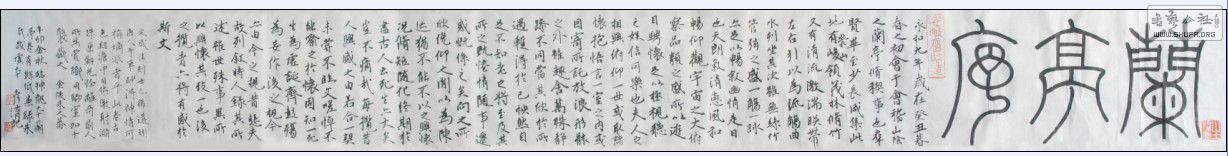 蘭亭序
永和九年歲在癸丑暮
春之初會于會稽山陰
之蘭亭脩禊事也羣
賢畢至少長咸集此
地有崇山峻領茂林脩竹
又有清流激湍暎帶
左右引以為流觴曲
水列坐其次雖無絲竹
管絃之盛一觴一詠
亦足以暢敘幽情是日
也天朗氣清惠風和
暢仰觀宇宙之大俯
察品類之盛所以遊
目騁懷足以極視聽
之娛信可樂也夫人之
相與俯仰一世或取諸
懷抱悟言一室之內或
因寄所託放浪形骸
之外雖趣舍萬殊靜
躁不同當其欣於所
遇暫得於己快然自
足不知老之將至及其
所之既惓情隨事遷
感慨係之矣向之所
欣俛仰之間以為陳
迹猶不能不以之興懷
況脩短隨化終期於
盡古人云死生亦大矣
豈不痛哉每攬昔
人興感之由若合一契
未嘗不臨文嗟悼不
能喻之於懷固知一死
生為虛誕齊彭殤
為妄作後之視今
亦由今之視昔悲夫
故列敘時人錄其所
述雖世殊事異所
以興懷其致一也後
之攬者亦將有感於
斯文
WWW.SHUFA.ORG